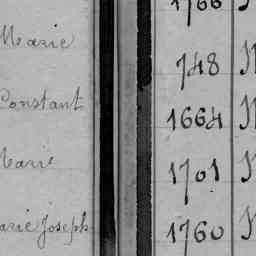 1766
Marie
748
Constant
1664
Marie
1701
Marie Joseph
1760